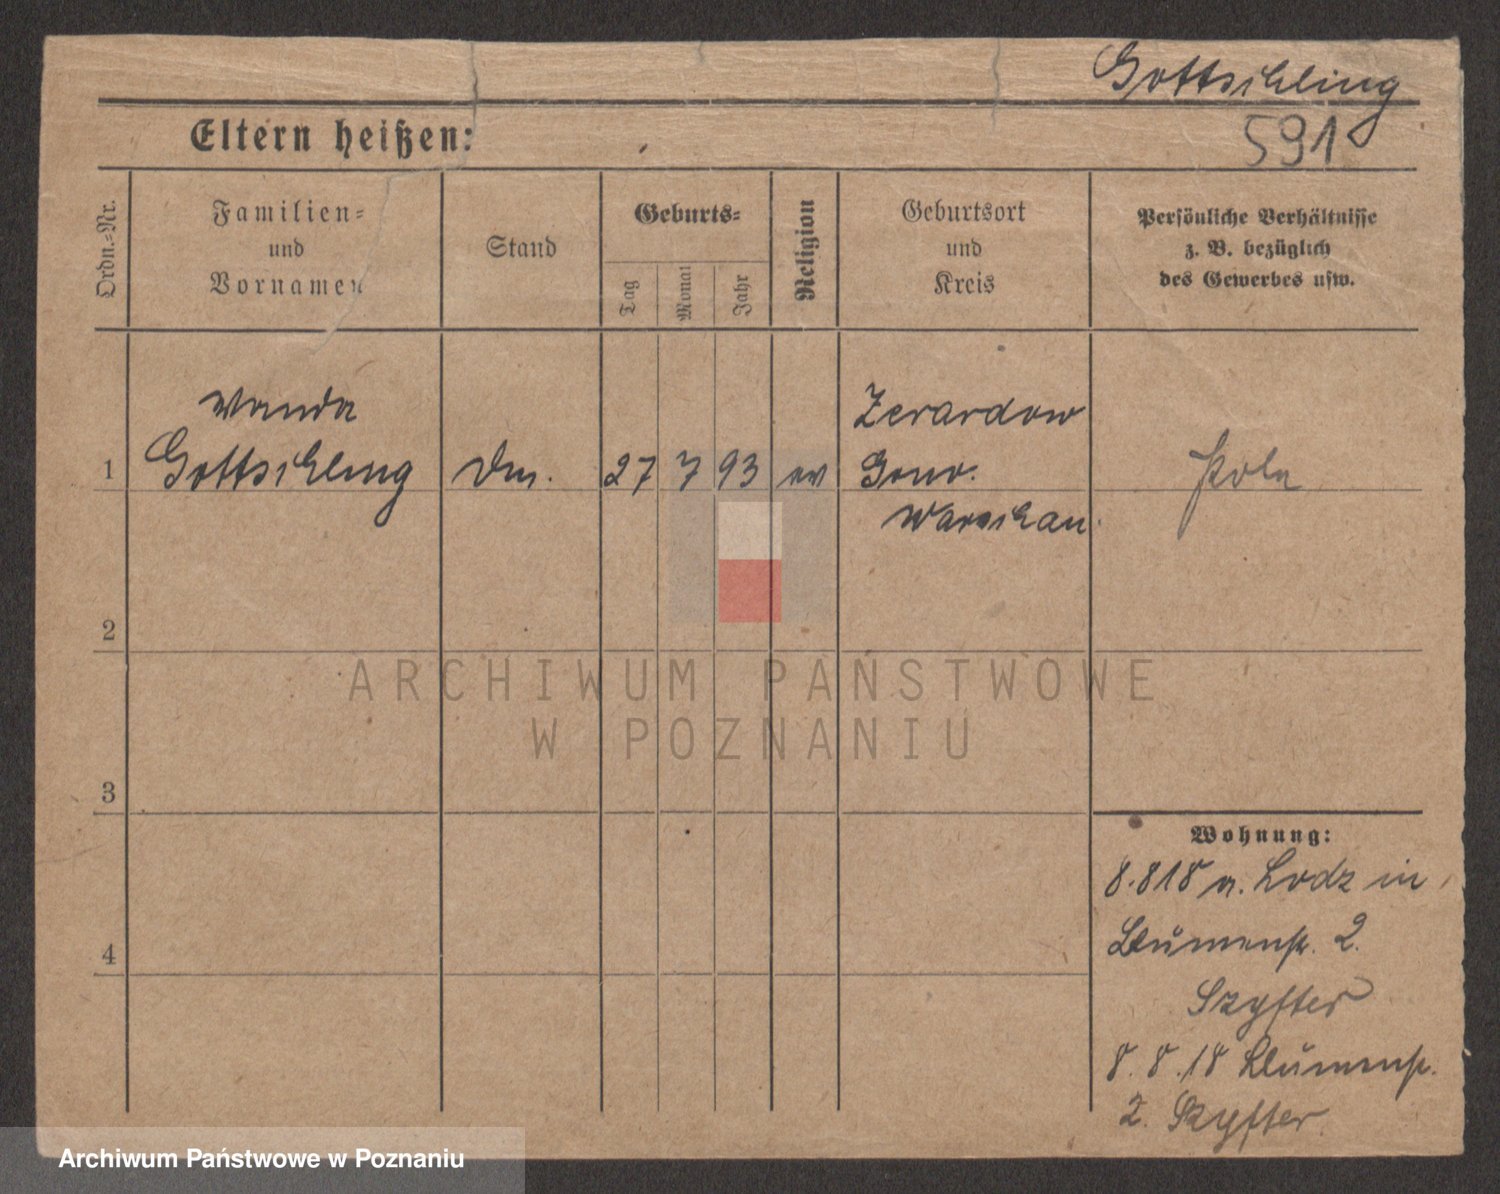 Gottschling
591
Eltern heißen:
Ordn.-Nr.
Familien-
und
Vornamen
Stand
Geburts-
Tag
Monat
Jahr
Religion
Geburtsort
und
Kreis
Persönliche Verhältnisse
z. B. bezüglich
des Gewerbes usw.
Wanda
1 Gottschling
27 7 93 ev
Zerardow
Gouv.
Warschau.
Pole
2
3
4
Wohnung:
8.8.18 n. Lodz in
Blumenstr. 2.
Szyfter
8.8.18 Blumenstr.
2. Szyfter.
ARCHIWUM PAŃSTWOWE
W POZNANIU
Archiwum Państwowe w Poznaniu